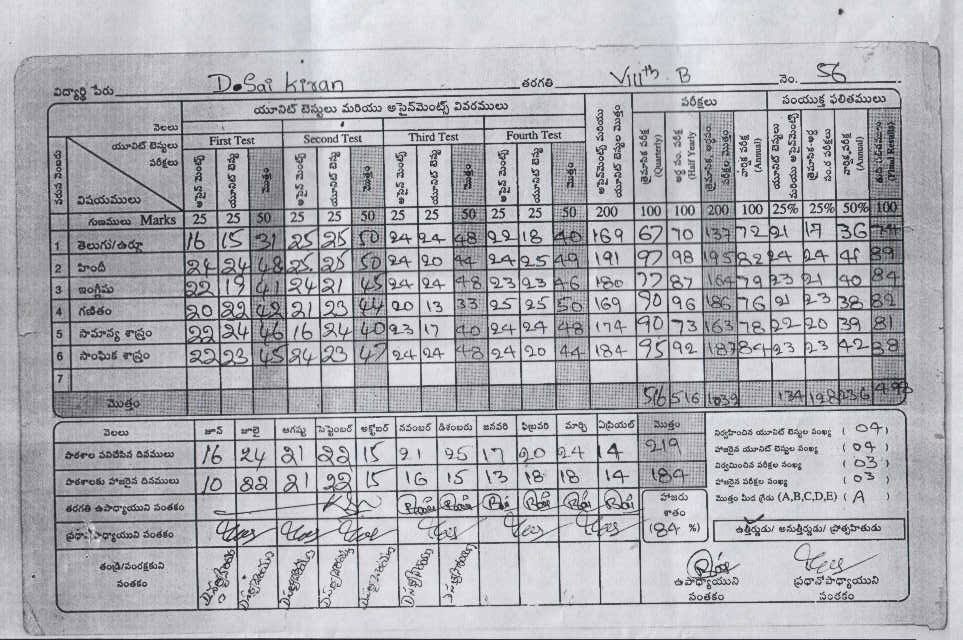 విద్యార్థి పేరు D. Sai Kiran తరగతి VIIIth B నెం. 56
యూనిట్ టెస్టులు మరియు అసైన్‌మెంట్స్ వివరములు పరీక్షలు సంయుక్త ఫలితములు
నెలలు First Test Second Test Third Test Fourth Test
యూనిట్ టెస్టులు పరీక్షలు
విషయములు
వరుస నంబరు
అసైన్ మెంట్స్ యూనిట్ టెస్ట్ మొత్తం అసైన్ మెంట్స్ యూనిట్ టెస్ట్ మొత్తం అసైన్ మెంట్స్ యూనిట్ టెస్ట్ మొత్తం అసైన్ మెంట్స్ యూనిట్ టెస్ట్ మొత్తం
(Quarterly) (Half Yearly) (Annual) (Annual) (Final Results)
గుణములు Marks 25 25 50 25 25 50 25 25 50 25 25 50 200 100 100 200 100 25% 25% 50% 100
1 తెలుగు/ఉర్దూ 16 15 31 25 25 50 24 24 48 22 18 40 169 67 70 137 72 21 17 36 74
2 హిందీ 24 24 48 25 25 50 24 20 44 24 25 49 191 97 98 195 82 24 24 41 89
3 ఇంగ్లీషు 22 19 41 24 21 45 24 24 48 23 23 46 180 77 87 164 79 23 21 40 84
4 గణితం 20 22 42 21 23 44 20 13 33 25 25 50 169 90 96 186 76 21 23 38 82
5 సామాన్య శాస్త్రం 22 24 46 16 24 40 23 17 40 24 24 48 174 90 73 163 78 22 20 39 81
6 సాంఘిక శాస్త్రం 22 23 45 24 23 47 24 24 48 24 20 44 184 95 92 187 84 23 23 42 88
7
మొత్తం 516 516 1039 134 128 236 498
నెలలు జూన్ జూలై ఆగష్టు సెప్టెంబర్ అక్టోబర్ నవంబర్ డిశంబరు జనవరి ఫిబ్రవరి మార్చి ఏప్రియల్ మొత్తం
పాఠశాల పనిచేసిన దినములు 16 24 21 22 15 21 25 17 20 24 14 219
పాఠశాలకు హాజరైన దినములు 10 22 21 22 15 16 15 13 18 18 14 184
నిర్వహించిన యూనిట్ టెస్టుల సంఖ్య ( 04 )
హాజరైన యూనిట్ టెస్టుల సంఖ్య ( 04 )
నిర్వహించిన పరీక్షల సంఖ్య ( 03 )
హాజరైన పరీక్షల సంఖ్య ( 03 )
మొత్తం మీద గ్రేడు (A,B,C,D,E) ( A )
తరగతి ఉపాధ్యాయుని సంతకం
హాజరు శాతం (84 %)
ప్రధానోపాధ్యాయుని సంతకం
ఉత్తీర్ణుడు/ అనుత్తీర్ణుడు/ ప్రోత్సహితుడు
తండ్రి/సంరక్షకుని సంతకం
ఉపాధ్యాయుని సంతకం
ప్రధానోపాధ్యాయుని సంతకం